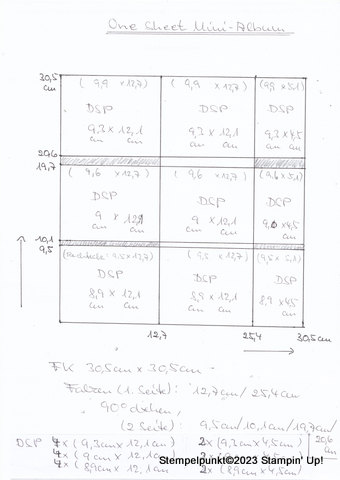 One Sheet Mini-Album
30,5 cm
(9,9 x 12,7) (9,9 x 12,7) (9,9 x 5,1)
DSP DSP DSP
9,3 x 12,1 9,3 x 12,1 9,3 x 4,5
cm cm cm cm cm cm
20,6
19,7
(9,6 x 12,7) (9,6 x 12,7) (9,6 x 5,1)
DSP DSP DSP
9 x 12,1 9 x 12,1 9,0 x 4,5
cm cm cm cm cm cm
10,1
9,5
(Rückseite: 9,5 x 12,7) (9,5 x 12,7) (9,5 x 5,1)
DSP DSP DSP
8,9 x 12,1 8,9 x 12,1 8,9 x 4,5
cm cm cm cm cm cm
12,7 25,4 30,5 cm
FK 30,5 cm x 30,5 cm
Falzen (1. Seite): 12,7 cm / 25,4 cm
90° drehen,
(2. Seite): 9,5 cm / 10,1 cm / 19,7 cm / 20,6 cm
DSP 4x (9,3 cm x 12,1 cm) 2x (9,3 cm x 4,5 cm)
4x (9 cm x 12,1 cm) 2x (9 cm x 4,5 cm)
4x (8,9 cm x 12,1 cm) 2x (8,9 cm x 4,5 cm)
Stempelpunkt©2023 Stampin' Up!